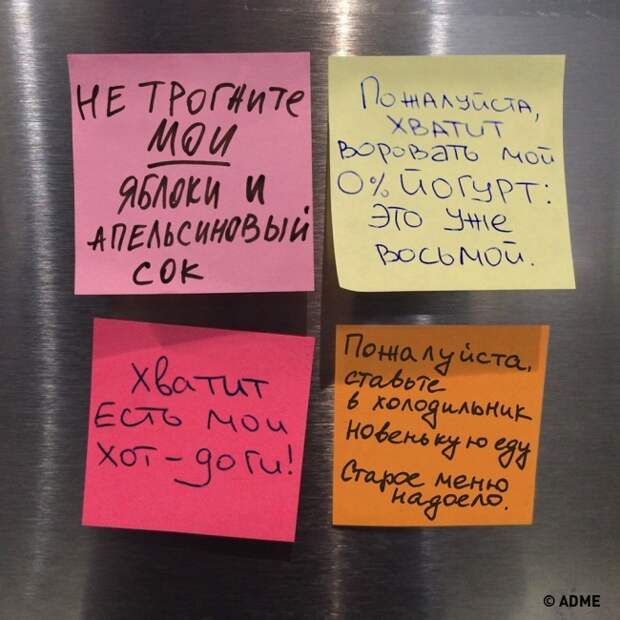 НЕ ТРОГАЙТЕ
МОИ
ЯБЛОКИ И
АПЕЛЬСИНОВЫЙ
СОК
Пожалуйста,
хватит
воровать мой
0% йогурт:
это уже
восьмой.
Хватит
Есть мои
хот-доги!
Пожалуйста,
ставьте
в холодильник
новенькую еду
Старое меню
надоело.
© ADME